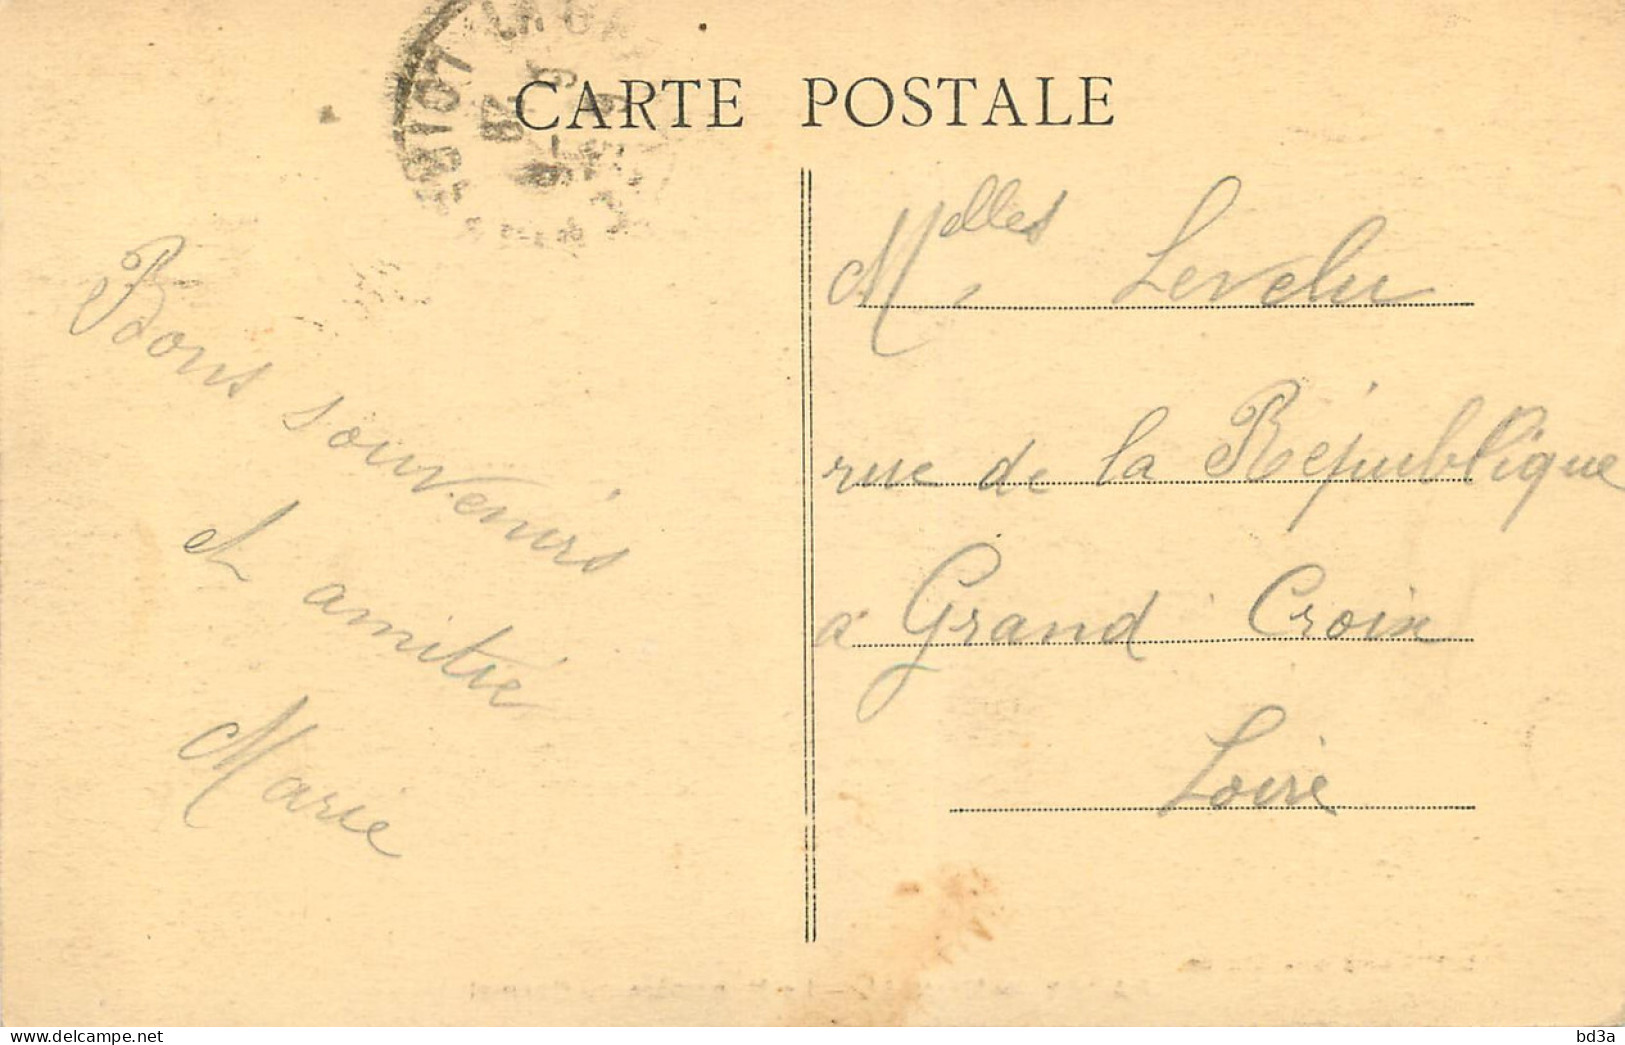 CARTE POSTALE
Bons souvenirs
et amitié
Marie
Melles Levelu
rue de la République
à Grand Croix
Loire
delcampe.net
bd3a